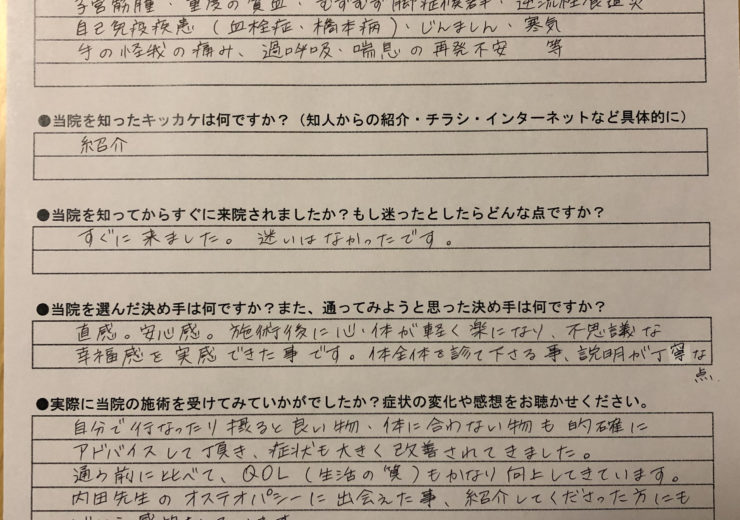 子宮筋腫・重度の貧血・むずむず脚症候群・逆流性食道炎
自己免疫疾患（血栓症・橋本病）・じんましん・寒気
手の怪我の痛み、過呼吸・喘息の再発不安　等
●当院を知ったキッカケは何ですか？（知人からの紹介・チラシ・インターネットなど具体的に）
紹介
●当院を知ってからすぐに来院されましたか？もし迷ったとしたらどんな点ですか？
すぐに来ました。迷いはなかったです。
●当院を選んだ決め手は何ですか？また、通ってみようと思った決め手は何ですか？
直感。安心感。施術後に心・体が軽く楽になり、不思議な
幸福感を実感できた事です。体全体を診て下さる事、説明が丁寧な
点
●実際に当院の施術を受けてみていかがでしたか？症状の変化や感想をお聴かせください。
自分で行なったり摂ると良い物・体に合わない物も的確に
アドバイスして頂き、症状も大きく改善されてきました。
通う前に比べて、QOL（生活の質）もかなり向上してきています。
内田先生のオステオパシーに出会えた事、紹介してくださった方にも